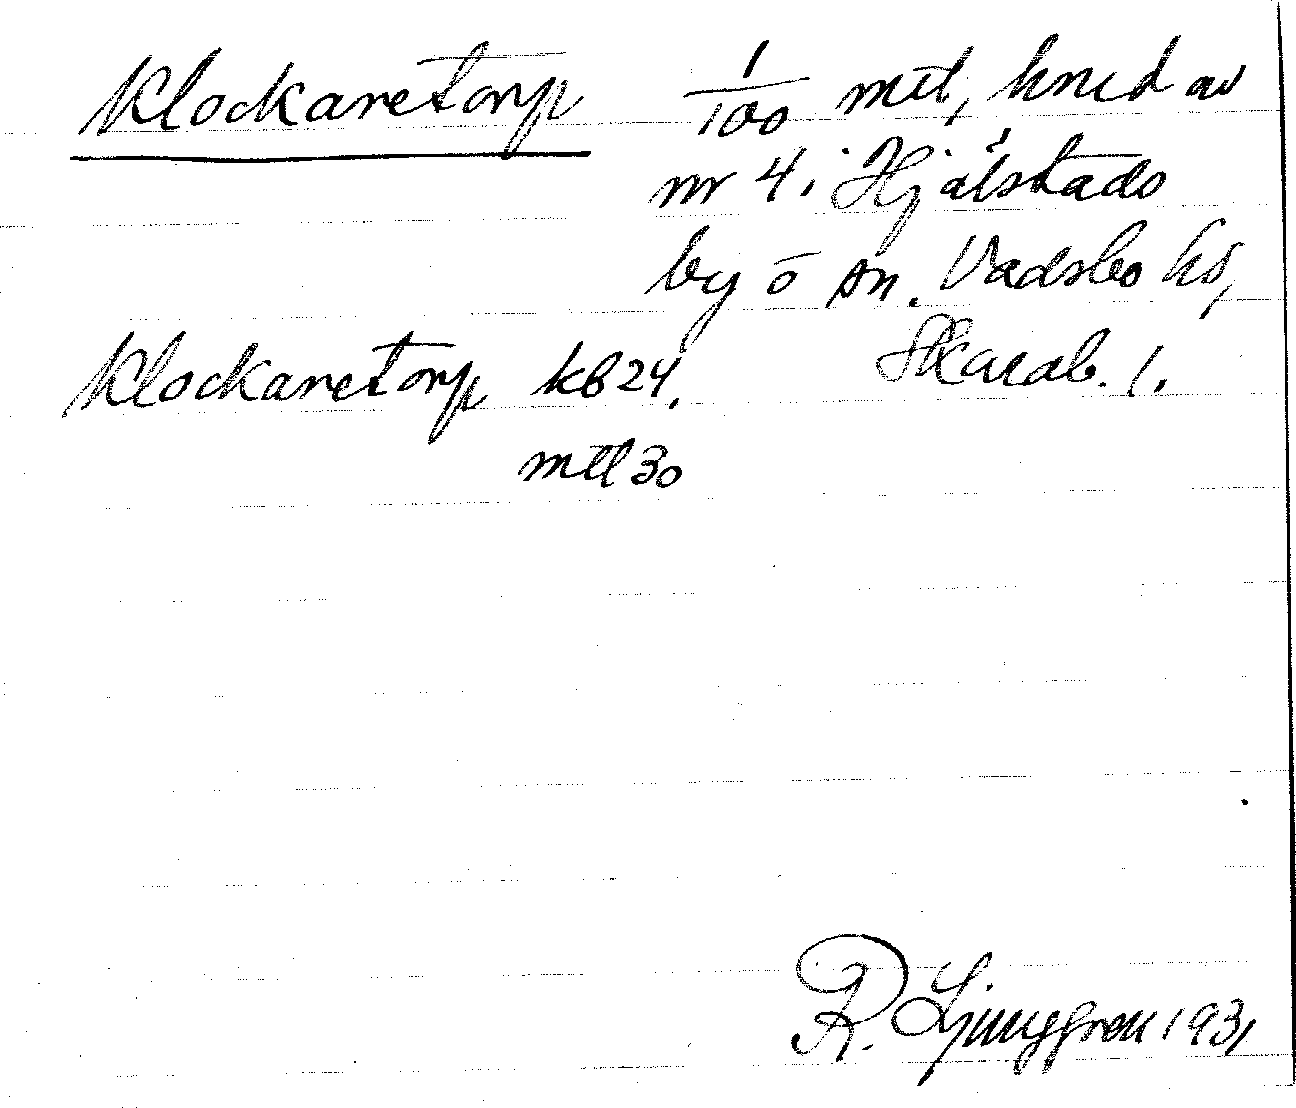 Klockaretorp 1/100 mtl, hmd av
nr 4 i Hjälstads
by o sn. Vadsbo hd,
Skarab. l.
Klockaretorp kb 24,
mtl 30
R. Ljunggren 1931